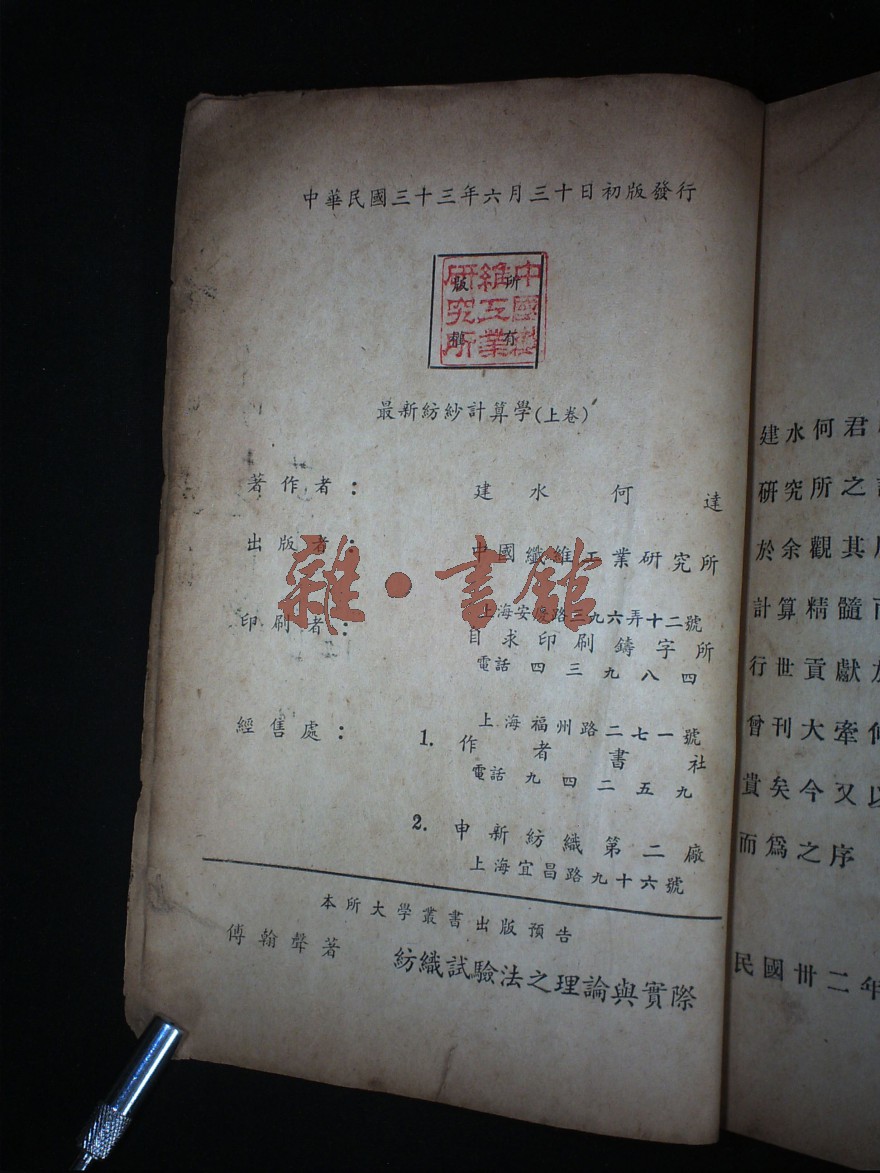 中華民國三十三年六月三十日初版發行
版 所
權 有
中國纖
維工業
研究所
最新紡紗計算學(上卷)
著作者: 建水 何達
出版者: 中國纖維工業研究所
印刷者: 上海安慶路三九六弄十二號
自求印刷鑄字所
電話 四三九八四
經售處: 1. 上海福州路二七一號
作者書社
電話 九四二五九
2. 申新紡織第二廠
上海宜昌路九十六號
本所大學叢書出版預告
傅翰聲著 紡織試驗法之理論與實際
雜·書館
建水何君
研究所之
於余觀其
計算精髓而
行世貢獻
曾刊大牽伸
賁矣今又以
而爲之序
民國卅二年